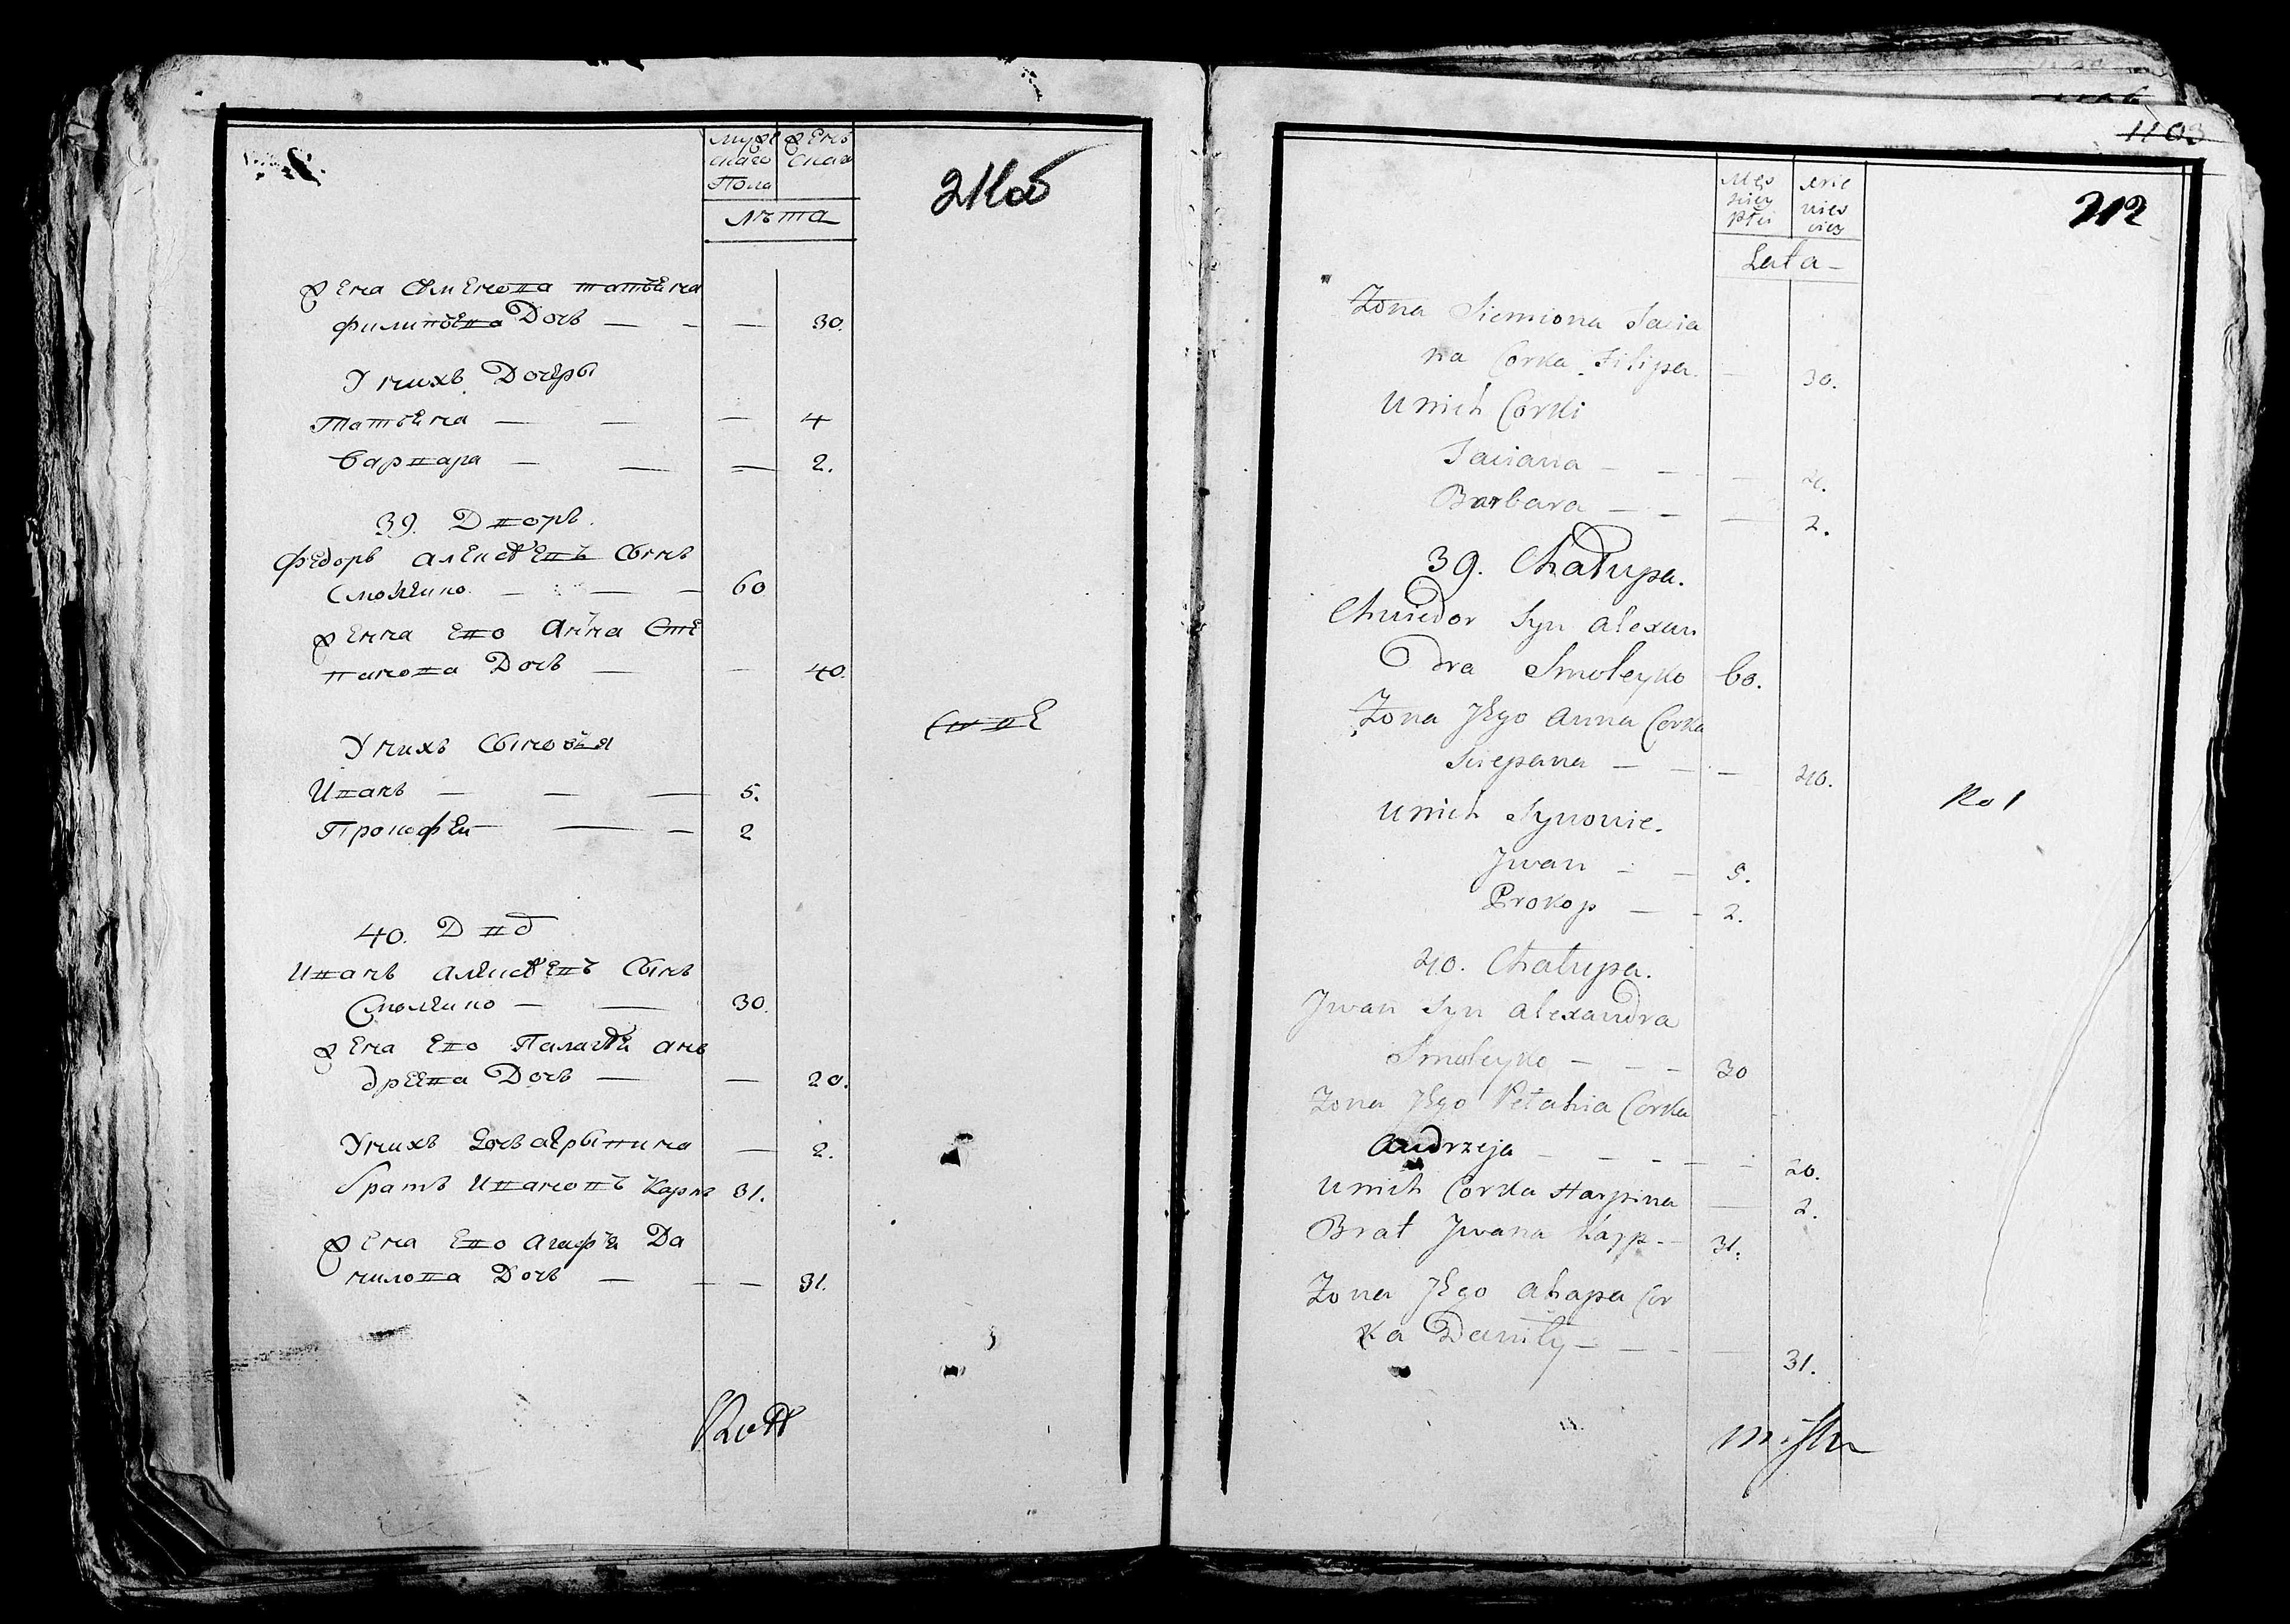 Мужескаго Пола
Женскаго
Лѣта
211об
Жена Семиона татьяна
филипова Дочь — — — 30.
У нихъ Дочеры
Татьяна — — — 4
Варвара — — — 2.
39. Дворъ.
Федоръ алексѣевъ Сынъ
Смолейко — — — 60
Женна Ево Анна Сте
панова Дочь — — 40.
У нихъ Сыновья
Иванъ — — — 5.
Прокофей — — 2
40. Двo
Иванъ алексѣевъ Сынъ
Смолейко — — 30.
Жена Ево Палагея ан
дреева Дочь — — 20.
У нихъ Дочь агрыпина — 2.
братъ Ивановъ Карпъ 31.
Жена Ево агафья Да
нилова Дочь — — — 31.
1103
Męs kiey Płci
Żeń
Lata
212
Żona Siemiona Tacia
na Corka Filipa. — 30.
U nich Corki
Taciana — — — 4.
Barbara — — — 2.
39. Chałupa.
Chwiedor Syn Alexan
dra Smoleyko 60.
Żona Jego Anna Corka
Sciepana — — — 40.
U nich Synowie.
Jwan — — 5.
Prokop — — 2.
40. Chałupa.
Jwan Syn Alexandra
Smoleyko — — — 30
Żona Jego Pełahia Corka
Andrzeja — — — — 20.
U nich Corka Harpina — 2.
Brat Jwana Karp. — 31.
Żona Jego Ahapa Cor
ka Daniły — — — 31.